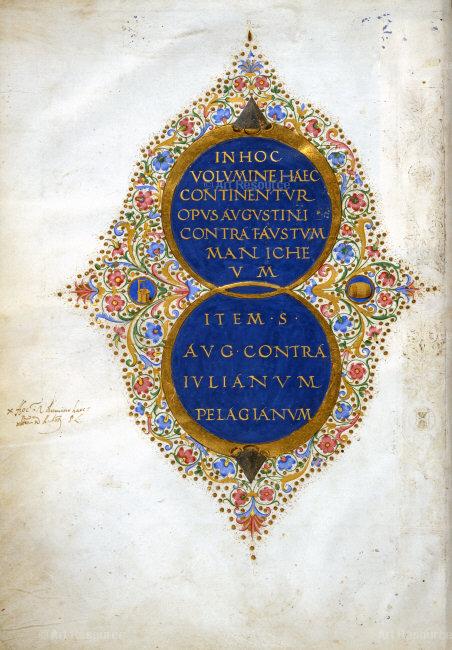 IN HOC
VOLVMINE HAEC
CONTINENTVR
OPVS AVGVSTINI
CONTRA FAVSTVM
MANICHE
VM
ITEM·S·
AVG·CONTRA
IVLIANVM
PELAGIANVM
© Art Resource
© Art Resource
Art Resource